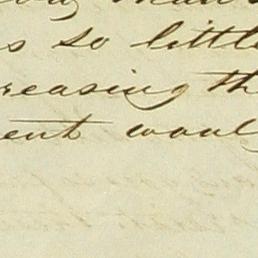 s so little
reasing th
ent woul